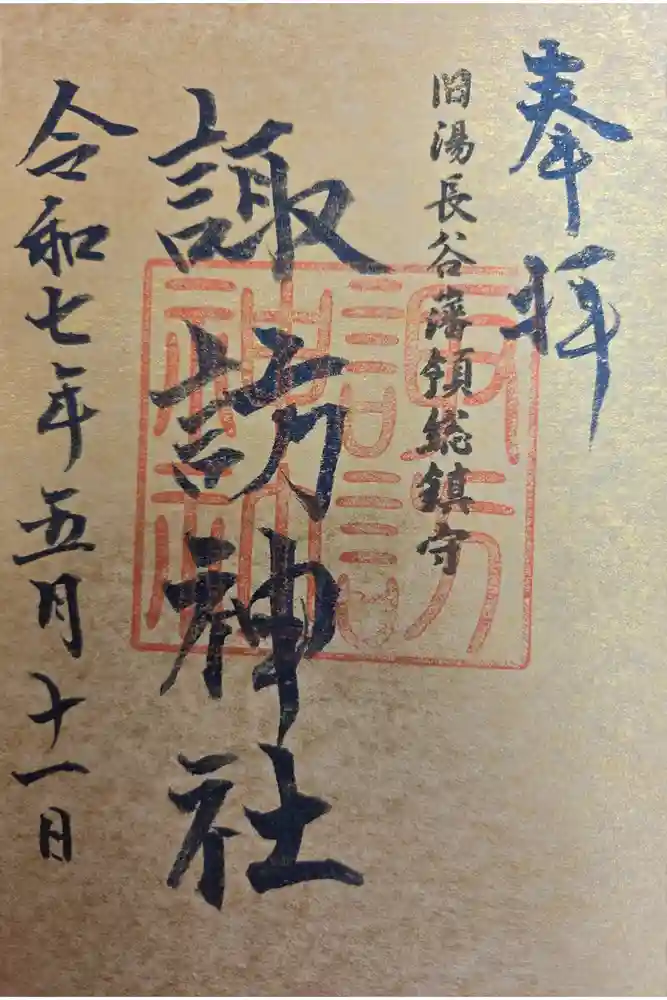 奉拝
旧湯長谷藩領総鎮守
諏訪神社
令和七年五月十一日
諏訪
神社